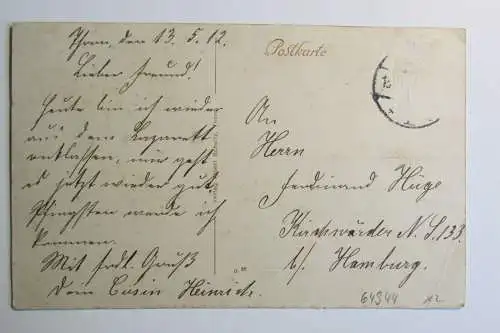 Thorn, den 13.5.12.
Lieber Freund!
Heute bin ich wieder
aus dem Lazarett
entlassen, mir geht
es jetzt wieder gut.
Pfingsten werde ich
kommen.
Mit frdl. Gruß
Dein Cousin Heinrich.
Postkarte
An
Herrn
Ferdinand Hüge
Kirchwärder N. S. 133.
b/ Hamburg.
64944